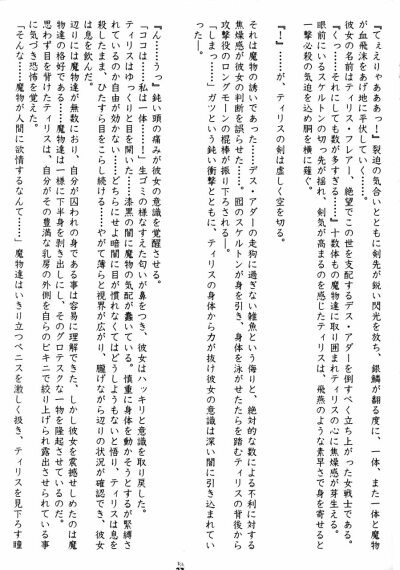 『てぇえりゃあああっ！』裂迫の気合いとともに剣先が鋭い閃光を放ち、銀鱗が翻る度に、一体、また一体と魔物
が血飛沫をあげ地に平伏していく……。
彼女の名前はティリス・フレアー、絶望でこの世を支配するデス・アダーを倒すべく立ち上がった女戦士である。
『くっ……それにしても数が多すぎる……』十数体もの魔物達に取り囲まれティリスの心に焦燥感が芽生える。
眼前にいるスケルトンの切っ先が揺れ、剣気が高まるのを感じたティリスは、飛燕のような素早さで身を寄せると
一撃必殺の気迫を込め胴を横に薙ぐ。
『！』……が、ティリスの剣は虚しく空を切る。
それは魔物の誘いであった……デス・アダーの走狗に過ぎない雑魚という侮りと、絶対的な数による不利に対する
焦燥感が彼女の判断を誤らせた……。囮のスケルトンが身を引き、身体を泳がせたたらを踏むティリスの背後から
攻撃役のロングモーンの棍棒が振り下ろされる―。
『しまっ…』ガツという鈍い衝撃とともに、ティリスの身体から力が抜け彼女の意識は深い闇に引き込まれてい
『ん……うっ』鈍い頭の痛みが彼女の意識を覚醒させる。
『ココは……私は一体……！』生ゴミの様なすえた匂いが鼻をつき、彼女はハッキリと意識を取り戻した。
ティリスはゆっくりと目を開いた……漆黒の闇に魔物の気配が蠢いている。慎重に身体を動かそうとするが緊縛さ
れているのか自由が効かない……どちらにせよ暗闇に目が慣れなくてはどうしようもないと悟り、ティリスは息を
殺したまま、ひたすら目をこらし続ける……やがて薄らと視界が広がり、朧げながら辺りの状況が確認でき、彼女
は息を飲んだ。
辺りには魔物達が無数におり、自分が囚われの身である事は容易に理解できた、しかし彼女を震撼せしめたのは魔
物達の格好である……魔物達は一様に下半身を剥き出しにし、そのグロテスクな一物を隆起させているのだ。
思わず目を背けたティリスは、自分がその豊満な乳房の外側を自らのビキニで絞り上げられ露出させられている事
に気づき恐怖を覚えた。
『そんな……魔物が人間に欲情するなんて……』魔物達はいきり立つペニスを激しく扱き、ティリスを見下ろす瞳